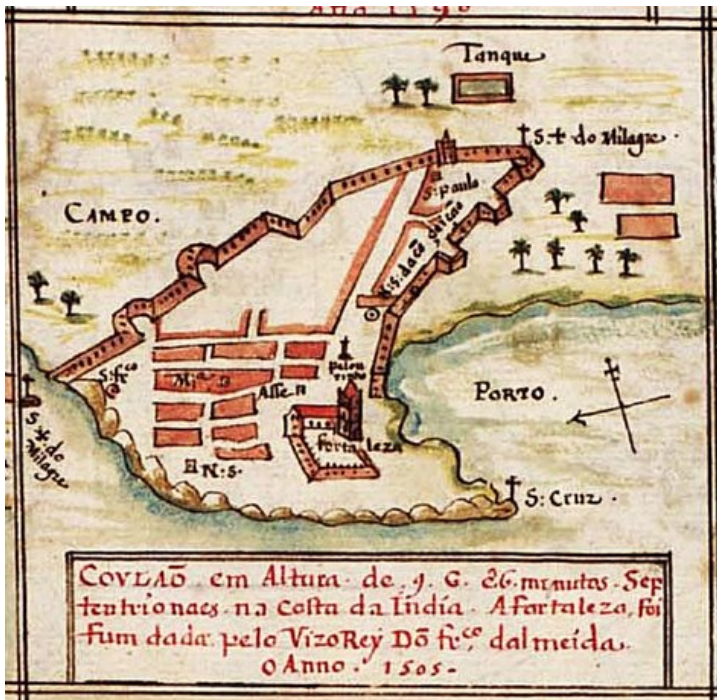 Tanque
S: ✝ do Milagre.
S: Paulo
CAMPO.
S: frco
Palou
rinho
Mia
Alfe
PORTO.
S ✝ do
Milagre
fortaleza
N: S.
S: Cruz.
COVLAÕ em Altura. de. 9. G. e 6. minutos. Sep
tentrionaes. na Costa da India. A fortaleza, foi
fumdada. pelo VizoRey Dõ frco, dalmeida.
O Anno. 1505.